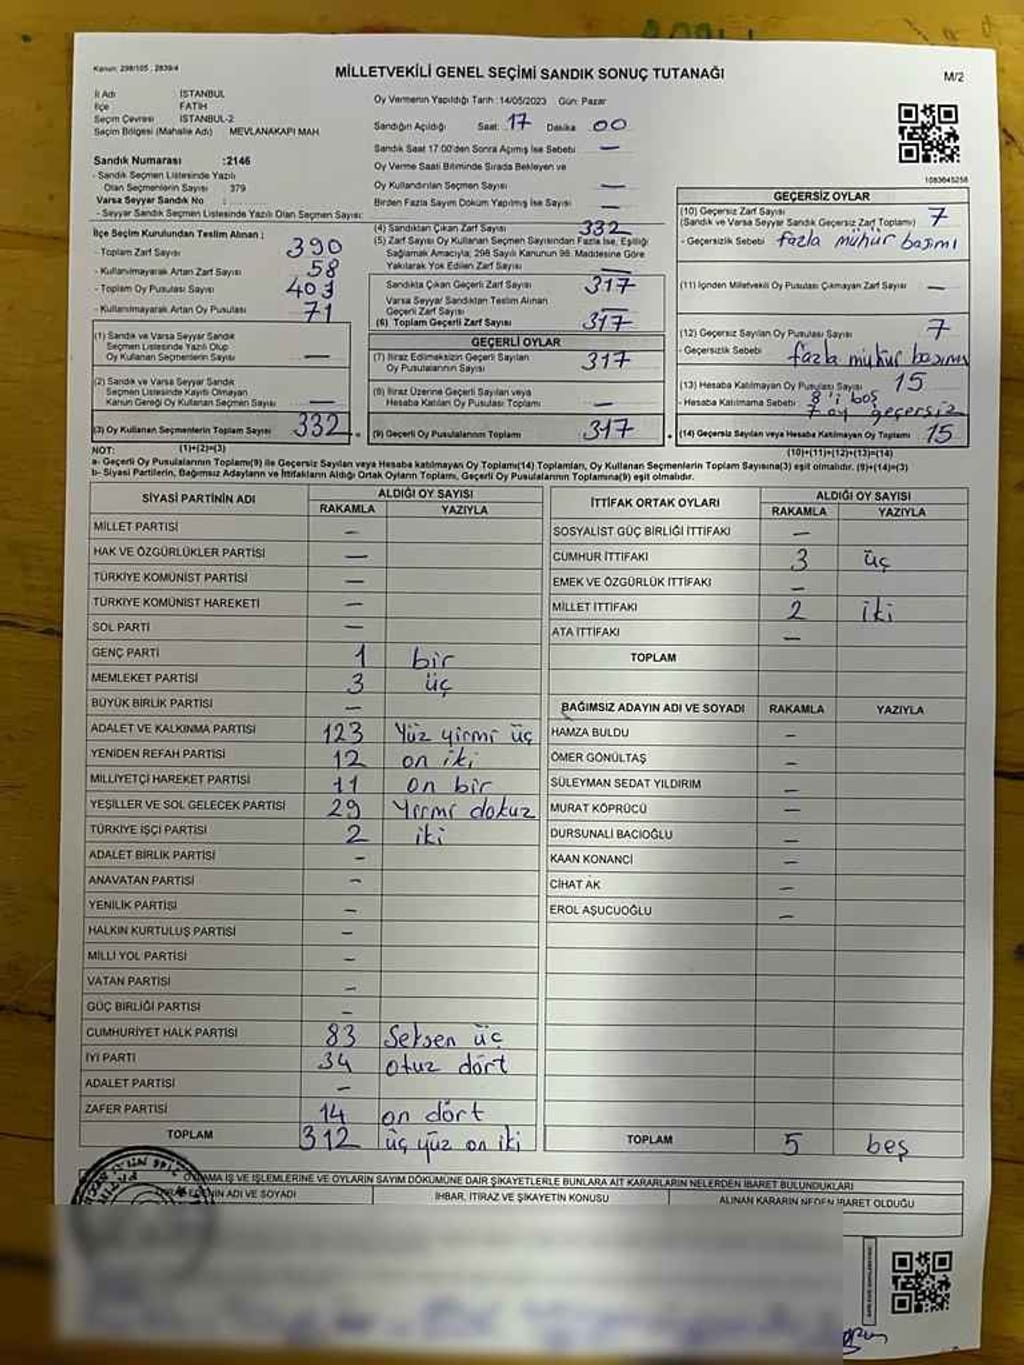 Kanun: 298/105 ; 2839/4
MİLLETVEKİLİ GENEL SEÇİMİ SANDIK SONUÇ TUTANAĞI
M/2
İl Adı : İSTANBUL
İlçe : FATİH
Seçim Çevresi : İSTANBUL-2
Seçim Bölgesi (Mahalle Adı) MEVLANAKAPI MAH.
Sandık Numarası :2146
- Sandık Seçmen Listesinde Yazılı
Olan Seçmenlerin Sayısı 379
Varsa Seyyar Sandık No :
- Seyyar Sandık Seçmen Listesinde Yazılı Olan Seçmen Sayısı:
Oy Vermenin Yapıldığı Tarih :14/05/2023 Gün: Pazar
Sandığın Açıldığı Saat: 17 Dakika 00
Sandık Saat 17:00'den Sonra Açılmış İse Sebebi —
Oy Verme Saati Bitiminde Sırada Bekleyen ve
Oy Kullandırılan Seçmen Sayısı —
Birden Fazla Sayım Döküm Yapılmış İse Sayısı —
1083645258
İlçe Seçim Kurulundan Teslim Alınan ;
- Toplam Zarf Sayısı 390
- Kullanılmayarak Artan Zarf Sayısı 58
- Toplam Oy Pusulası Sayısı 403
- Kullanılmayarak Artan Oy Pusulası 71
(1) Sandık ve Varsa Seyyar Sandık
Seçmen Listesinde Yazılı Olup
Oy Kullanan Seçmenlerin Sayısı —
(2) Sandık ve Varsa Seyyar Sandık
Seçmen Listesinde Kayıtlı Olmayan
Kanun Gereği Oy Kullanan Seçmen Sayısı —
(3) Oy Kullanan Seçmenlerin Toplam Sayısı 332
(1)+(2)=(3)
(4) Sandıktan Çıkan Zarf Sayısı 332
(5) Zarf Sayısı Oy Kullanan Seçmen Sayısından Fazla İse, Eşitliği
Sağlamak Amacıyla; 298 Sayılı Kanunun 98. Maddesine Göre
Yakılarak Yok Edilen Zarf Sayısı —
Sandıkta Çıkan Geçerli Zarf Sayısı 317
Varsa Seyyar Sandıktan Teslim Alınan
Geçerli Zarf Sayısı —
(6) Toplam Geçerli Zarf Sayısı 317
GEÇERLİ OYLAR
(7) İtiraz Edilmeksizin Geçerli Sayılan
Oy Pusulalarının Sayısı 317
(8) İtiraz Üzerine Geçerli Sayılan veya
Hesaba Katılan Oy Pusulası Toplamı —
(9) Geçerli Oy Pusulalarının Toplamı 317
GEÇERSİZ OYLAR
(10) Geçersiz Zarf Sayısı 7
(Sandık ve Varsa Seyyar Sandık Geçersiz Zarf Toplamı)
- Geçersizlik Sebebi fazla mühür basımı
(11) İçinden Milletvekili Oy Pusulası Çıkmayan Zarf Sayısı —
(12) Geçersiz Sayılan Oy Pusulası Sayısı 7
- Geçersizlik Sebebi fazla mühür basımı
(13) Hesaba Katılmayan Oy Pusulası Sayısı 15
- Hesaba Katılmama Sebebi 8'i boş
7 oy geçersiz
(14) Geçersiz Sayılan veya Hesaba Katılmayan Oy Toplamı 15
(10)+(11)+(12)+(13)=(14)
NOT:
a- Geçerli Oy Pusulalarının Toplamı(9) ile Geçersiz Sayılan veya Hesaba katılmayan Oy Toplamı(14) Toplamları, Oy Kullanan Seçmenlerin Toplam Sayısına(3) eşit olmalıdır. (9)+(14)=(3)
b- Siyasi Partilerin, Bağımsız Adayların ve İttifakların Aldığı Ortak Oyların Toplamı, Geçerli Oy Pusulalarının Toplamına(9) eşit olmalıdır.
SİYASİ PARTİNİN ADI ALDIĞI OY SAYISI
RAKAMLA YAZIYLA
MİLLET PARTİSİ —
HAK VE ÖZGÜRLÜKLER PARTİSİ —
TÜRKİYE KOMÜNİST PARTİSİ —
TÜRKİYE KOMÜNİST HAREKETİ —
SOL PARTİ —
GENÇ PARTİ 1 bir
MEMLEKET PARTİSİ 3 üç
BÜYÜK BİRLİK PARTİSİ —
ADALET VE KALKINMA PARTİSİ 123 Yüz yirmi üç
YENİDEN REFAH PARTİSİ 12 on iki
MİLLİYETÇİ HAREKET PARTİSİ 11 on bir
YEŞİLLER VE SOL GELECEK PARTİSİ 29 Yirmi dokuz
TÜRKİYE İŞÇİ PARTİSİ 2 iki
ADALET BİRLİK PARTİSİ —
ANAVATAN PARTİSİ —
YENİLİK PARTİSİ —
HALKIN KURTULUŞ PARTİSİ —
MİLLİ YOL PARTİSİ —
VATAN PARTİSİ —
GÜÇ BİRLİĞİ PARTİSİ —
CUMHURİYET HALK PARTİSİ 83 Seksen üç
İYİ PARTİ 34 otuz dört
ADALET PARTİSİ —
ZAFER PARTİSİ 14 on dört
TOPLAM 312 üç yüz on iki
İTTİFAK ORTAK OYLARI ALDIĞI OY SAYISI
RAKAMLA YAZIYLA
SOSYALİST GÜÇ BİRLİĞİ İTTİFAKI —
CUMHUR İTTİFAKI 3 üç
EMEK VE ÖZGÜRLÜK İTTİFAKI —
MİLLET İTTİFAKI 2 iki
ATA İTTİFAKI —
TOPLAM
BAĞIMSIZ ADAYIN ADI VE SOYADI RAKAMLA YAZIYLA
HAMZA BULDU —
ÖMER GÖNÜLTAŞ —
SÜLEYMAN SEDAT YILDIRIM —
MURAT KÖPRÜCÜ —
DURSUNALİ BACIOĞLU —
KAAN KONANCİ —
CİHAT AK —
EROL AŞUCUOĞLU —
TOPLAM 5 beş
OYLAMA İŞ VE İŞLEMLERİNE VE OYLARIN SAYIM DÖKÜMÜNE DAİR ŞİKAYETLERLE BUNLARA AİT KARARLARIN NELERDEN İBARET BULUNDUKLARI
ADI VE SOYADI İHBAR, İTİRAZ VE ŞİKAYETİN KONUSU ALINAN KARARIN NEDEN İBARET OLDUĞU